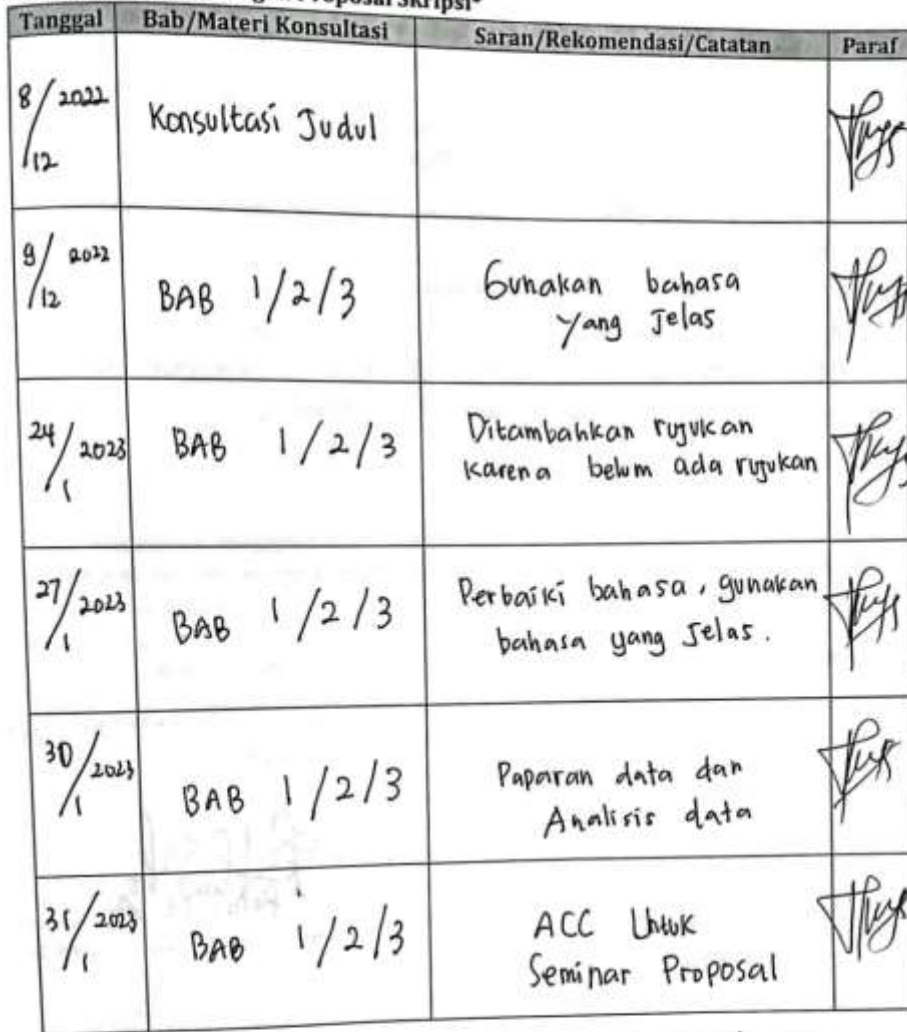 Proposal Skripsi*
Tanggal Bab/Materi Konsultasi Saran/Rekomendasi/Catatan Paraf
8/12 2022 Konsultasi Judul
9/12 2022 BAB 1/2/3 Gunakan bahasa
yang Jelas
24/1 2023 BAB 1/2/3 Ditambahkan rujukan
karena belum ada rujukan
27/1 2023 BAB 1/2/3 Perbaiki bahasa, gunakan
bahasa yang Jelas.
30/1 2023 BAB 1/2/3 Paparan data dan
Analisis data
31/1 2023 BAB 1/2/3 ACC Untuk
Seminar Proposal